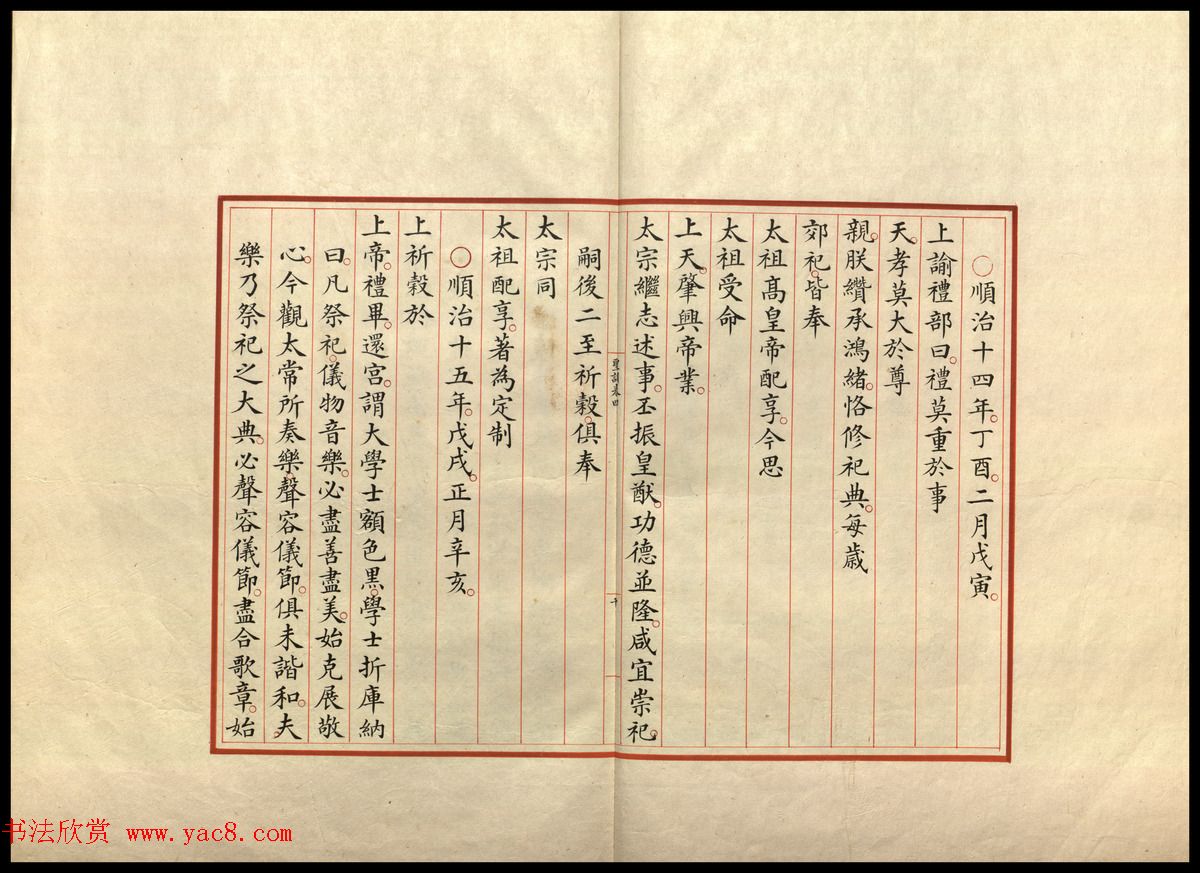 ○順治十四年丁酉二月戊寅
上諭禮部曰禮莫重於事
天孝莫大於尊
親朕纘承鴻緒恪修祀典每歲
郊祀皆奉
太祖高皇帝配享今思
太祖受命
上天肇興帝業
太宗繼志述事丕振皇猷功德並隆咸宜崇祀
聖訓卷四
十
嗣後二至祈穀俱奉
太宗同
太祖配享著為定制
○順治十五年戊戌正月辛亥
上祈穀於
上帝禮畢還宮謂大學士額色黑學士折庫納
曰凡祭祀儀物音樂必盡善盡美始克展敬
心今觀太常所奏樂聲容儀節俱未諧和夫
樂乃祭祀之大典必聲容儀節盡合歌章始
书法欣赏 www.yac8.com